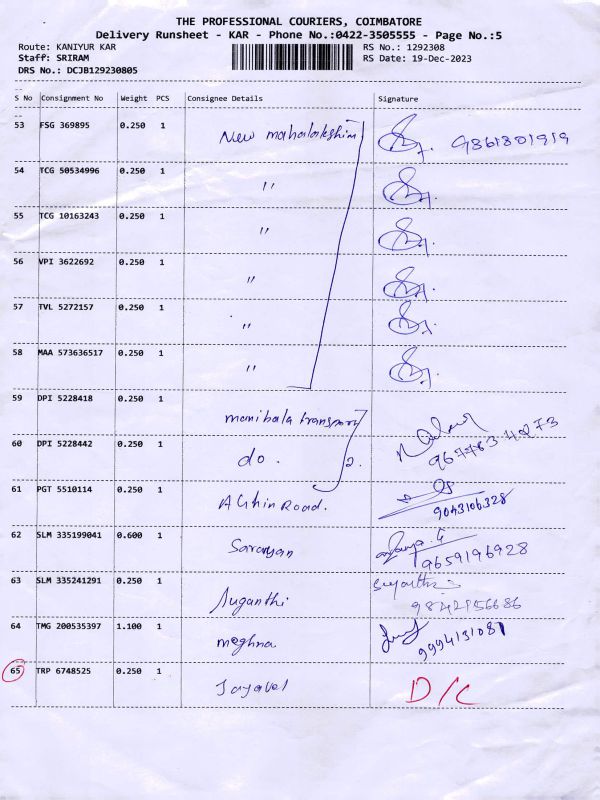 THE PROFESSIONAL COURIERS, COIMBATORE
Delivery Runsheet - KAR - Phone No.:0422-3505555 - Page No.:5
Route: KANIYUR KAR RS No.: 1292308
Staff: SRIRAM RS Date: 19-Dec-2023
DRS No.: DCJB129230805
S No Consignment No Weight PCS Consignee Details Signature
53 FSG 369895 0.250 1 New mahalakshim 9361801919
54 TCG 50534996 0.250 1 "
55 TCG 10163243 0.250 1 "
56 VPI 3622692 0.250 1 "
57 TVL 5272157 0.250 1 "
58 MAA 573636517 0.250 1 "
59 DPI 5228418 0.250 1 manibala transport
60 DPI 5228442 0.250 1 do. 2.
61 PGT 5510114 0.250 1 Road. 9043106328
62 SLM 335199041 0.600 1 Saravyan 9659196928
63 SLM 335241291 0.250 1 Suganthi 9842956686
64 TMG 200535397 1.100 1 meghna 9994131081
65 TRP 6748525 0.250 1 Jayavel D/C